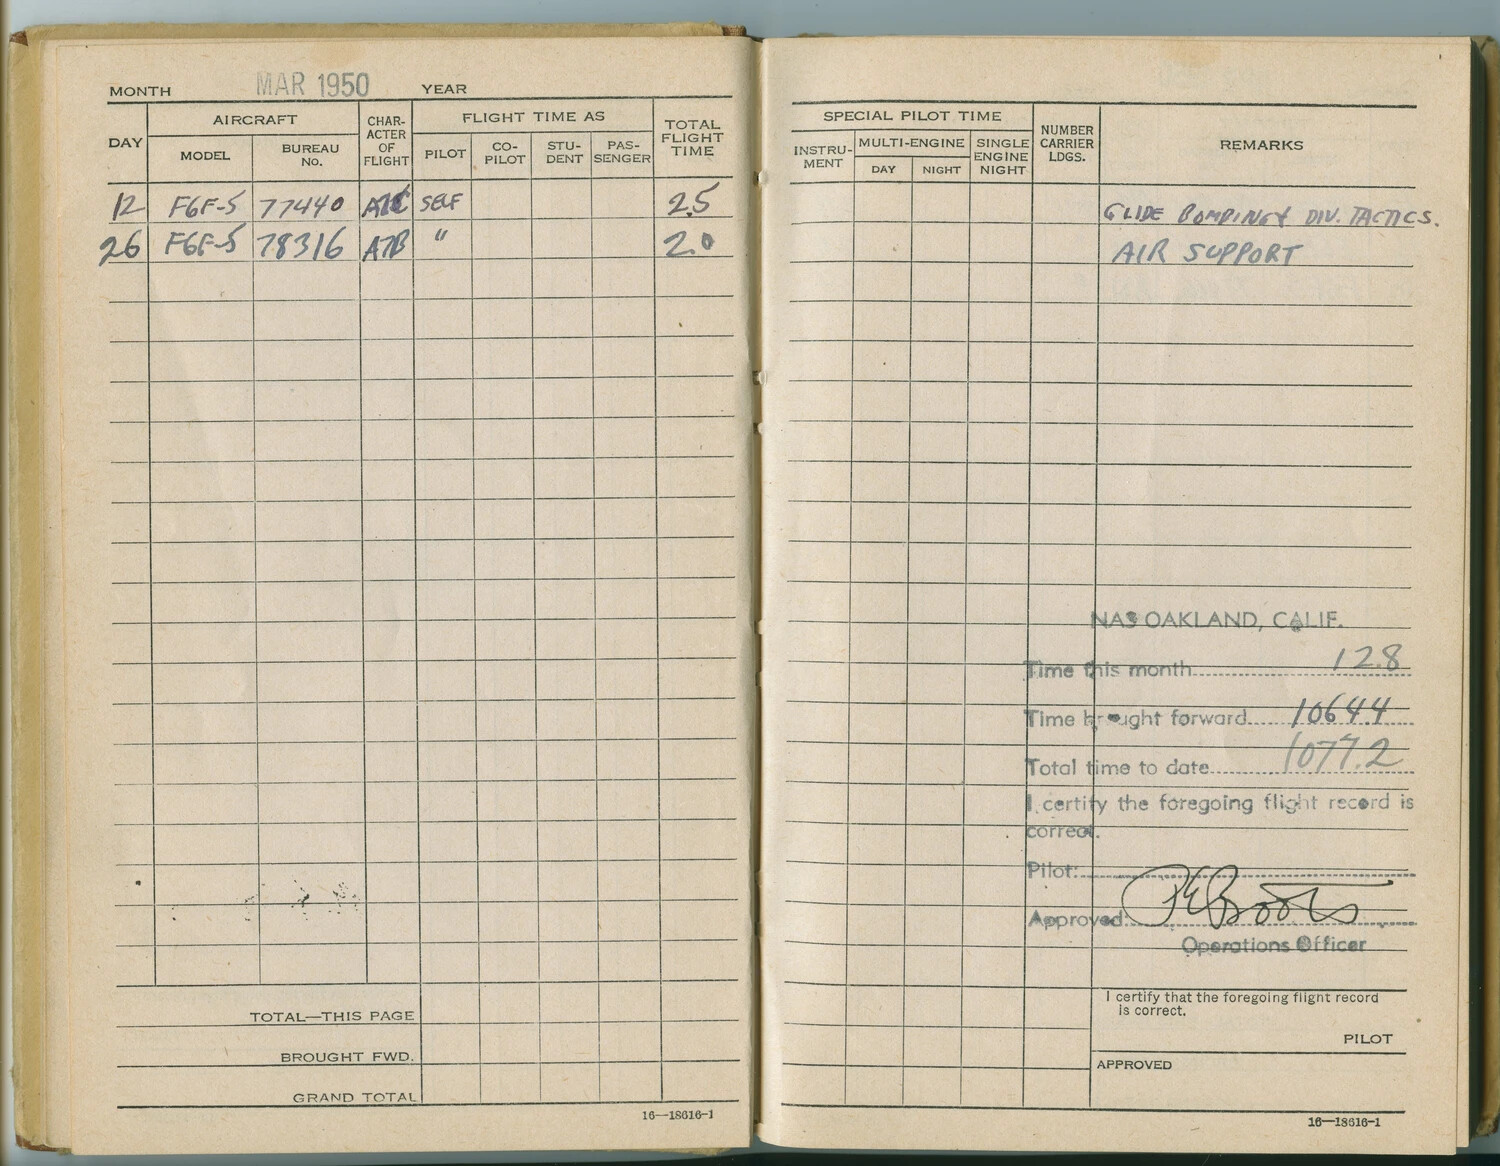 MONTH MAR 1950 YEAR
DAY AIRCRAFT CHAR-ACTER OF FLIGHT FLIGHT TIME AS TOTAL FLIGHT TIME
MODEL BUREAU No. PILOT CO-PILOT STU-DENT PAS-SENGER
12 F6F-5 77440 SELF 2.5
26 F6F-5 78316 A7B " 2.0
TOTAL—THIS PAGE
BROUGHT FWD.
GRAND TOTAL
16—18616-1
SPECIAL PILOT TIME NUMBER CARRIER LDGS. REMARKS
INSTRU-MENT MULTI-ENGINE SINGLE ENGINE NIGHT
DAY NIGHT
GLIDE BOMBING & DIV. TACTICS.
AIR SUPPORT
NAS OAKLAND, CALIF.
Time this month 12.8
Time brought forward 1064.4
Total time to date 1077.2
I certify the foregoing flight record is
correct.
Pilot:
Approved:
Operations Officer
I certify that the foregoing flight record
is correct.
PILOT
APPROVED
16—18616-1